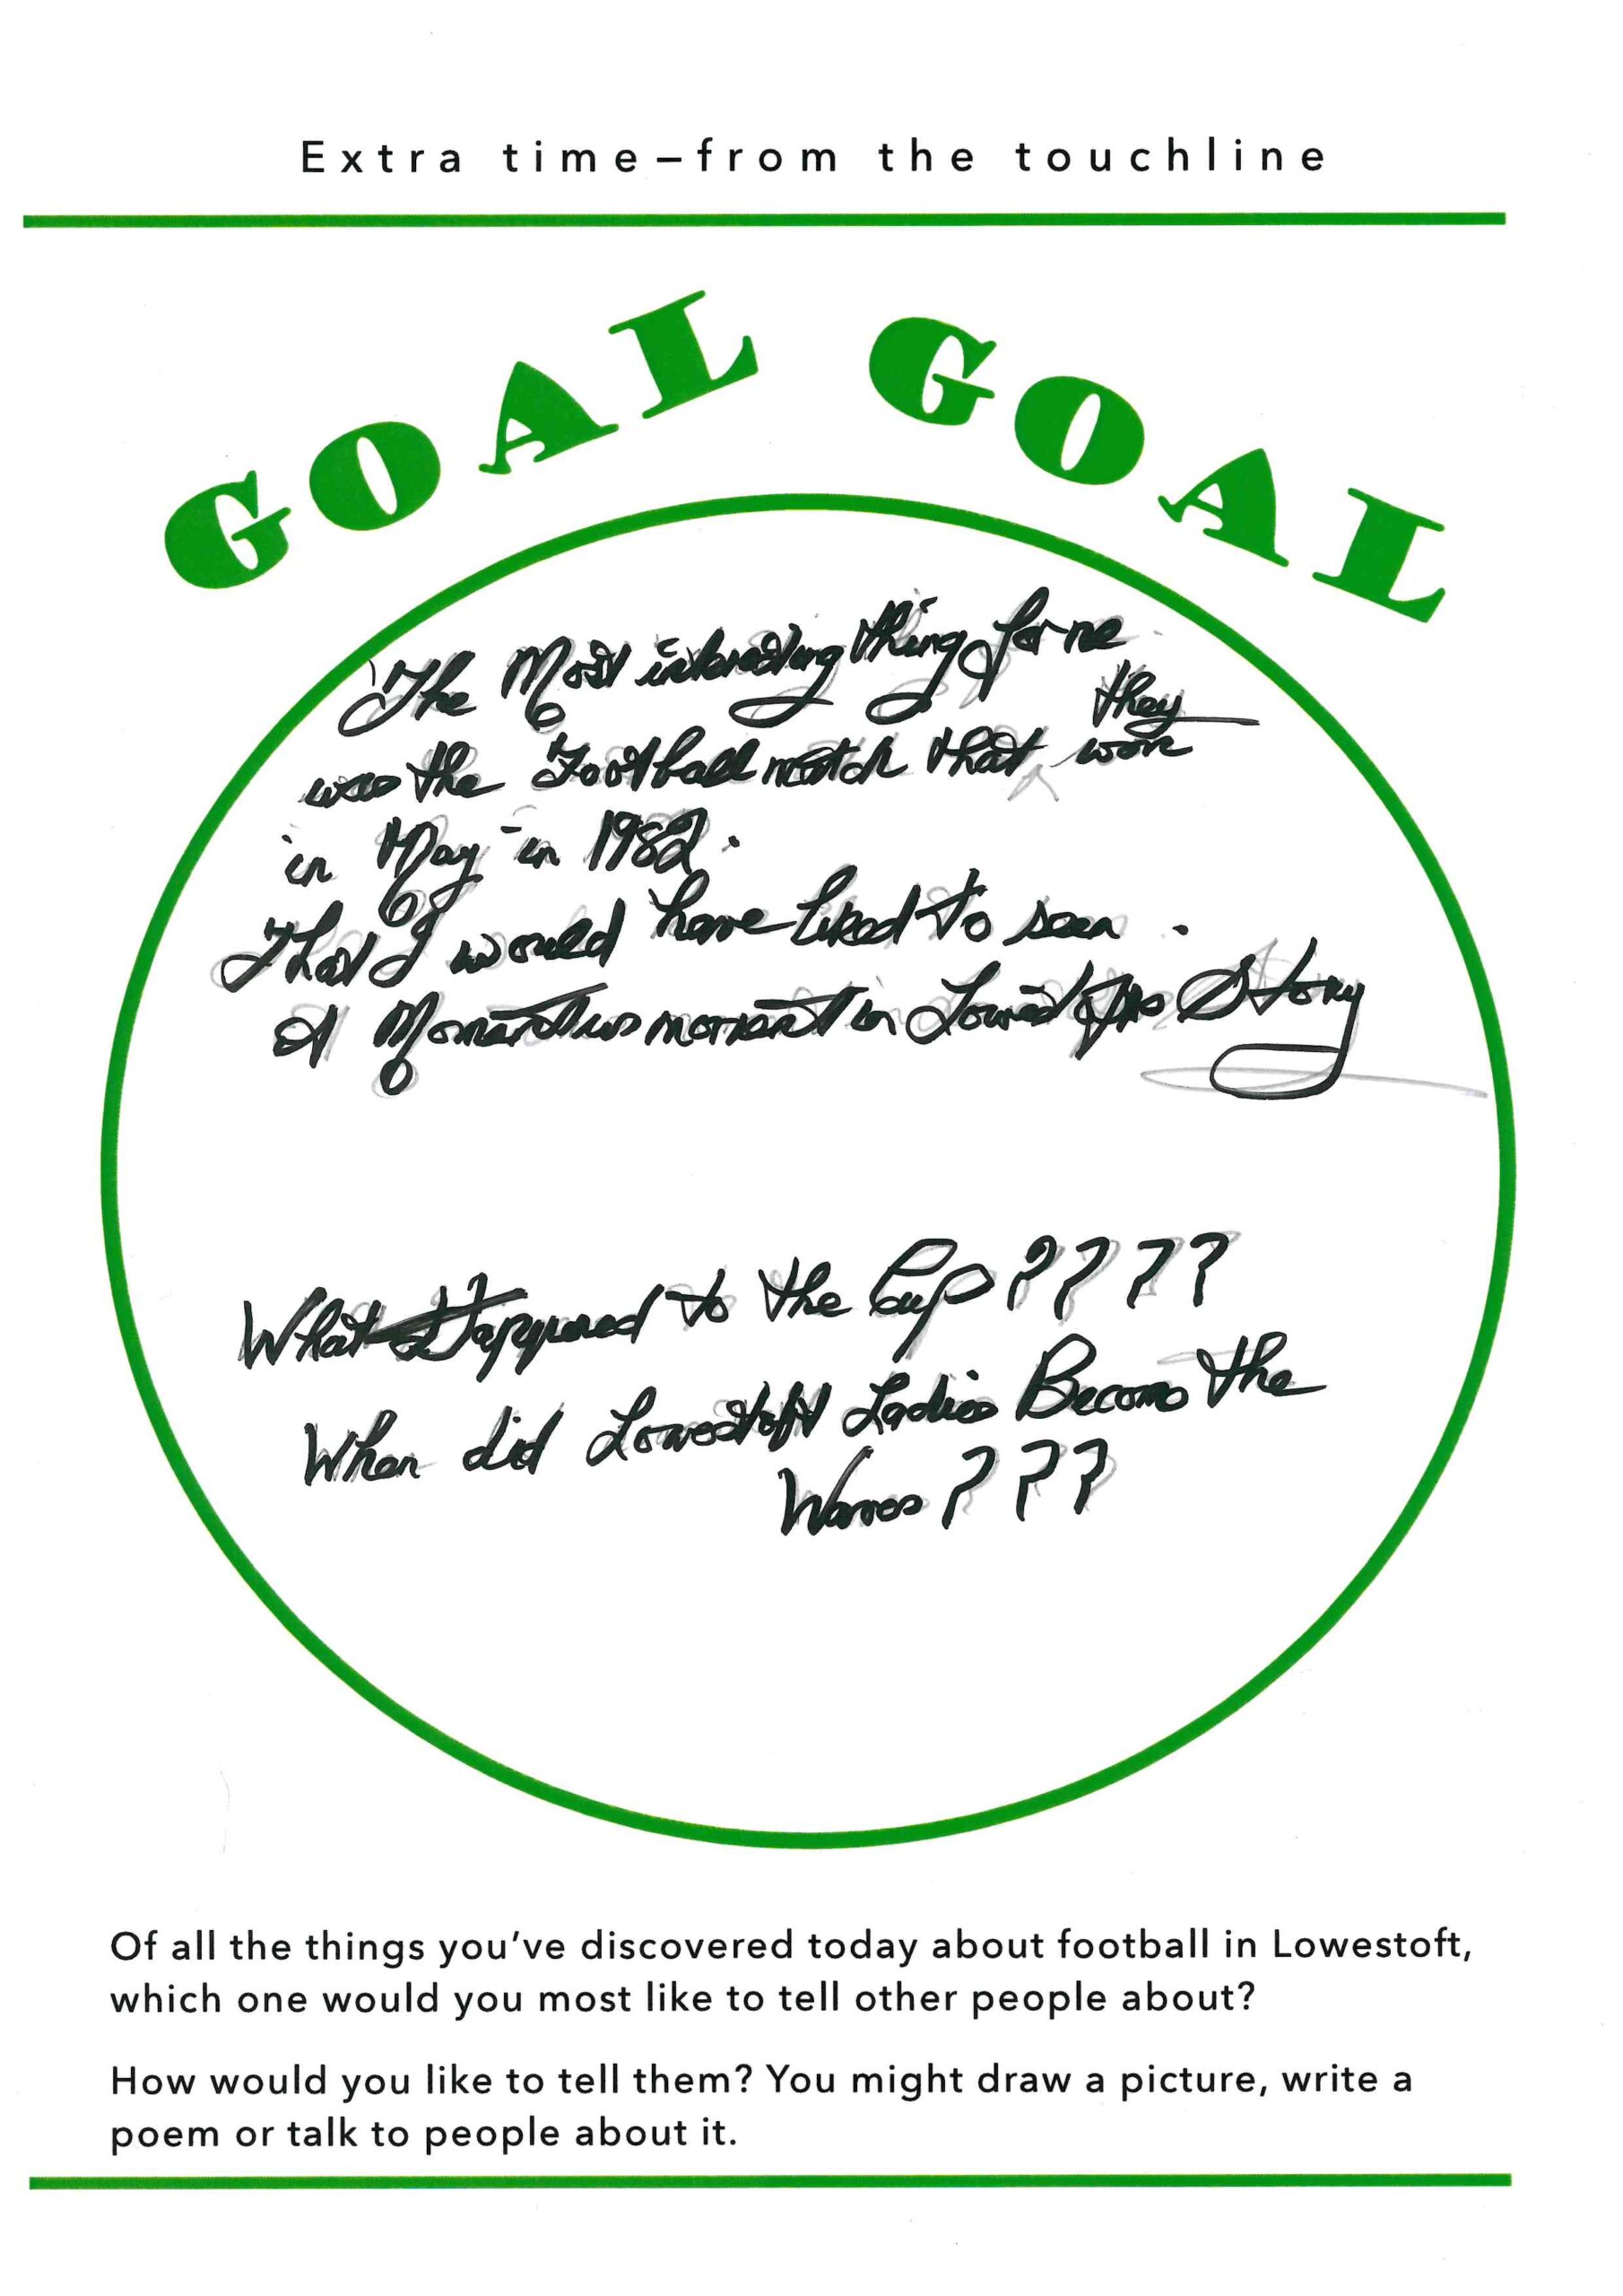 Extra time – from the touchline
GOAL GOAL
The Most interesting thing for me
they
was the Football match that won
in May in 1982.
That I would have liked to seen.
A Momentus moment in Lowestofts Story
What Happened to the Cup ????
When did Lowestoft Ladies Become the
Waves ???
Of all the things you've discovered today about football in Lowestoft,
which one would you most like to tell other people about?
How would you like to tell them? You might draw a picture, write a
poem or talk to people about it.